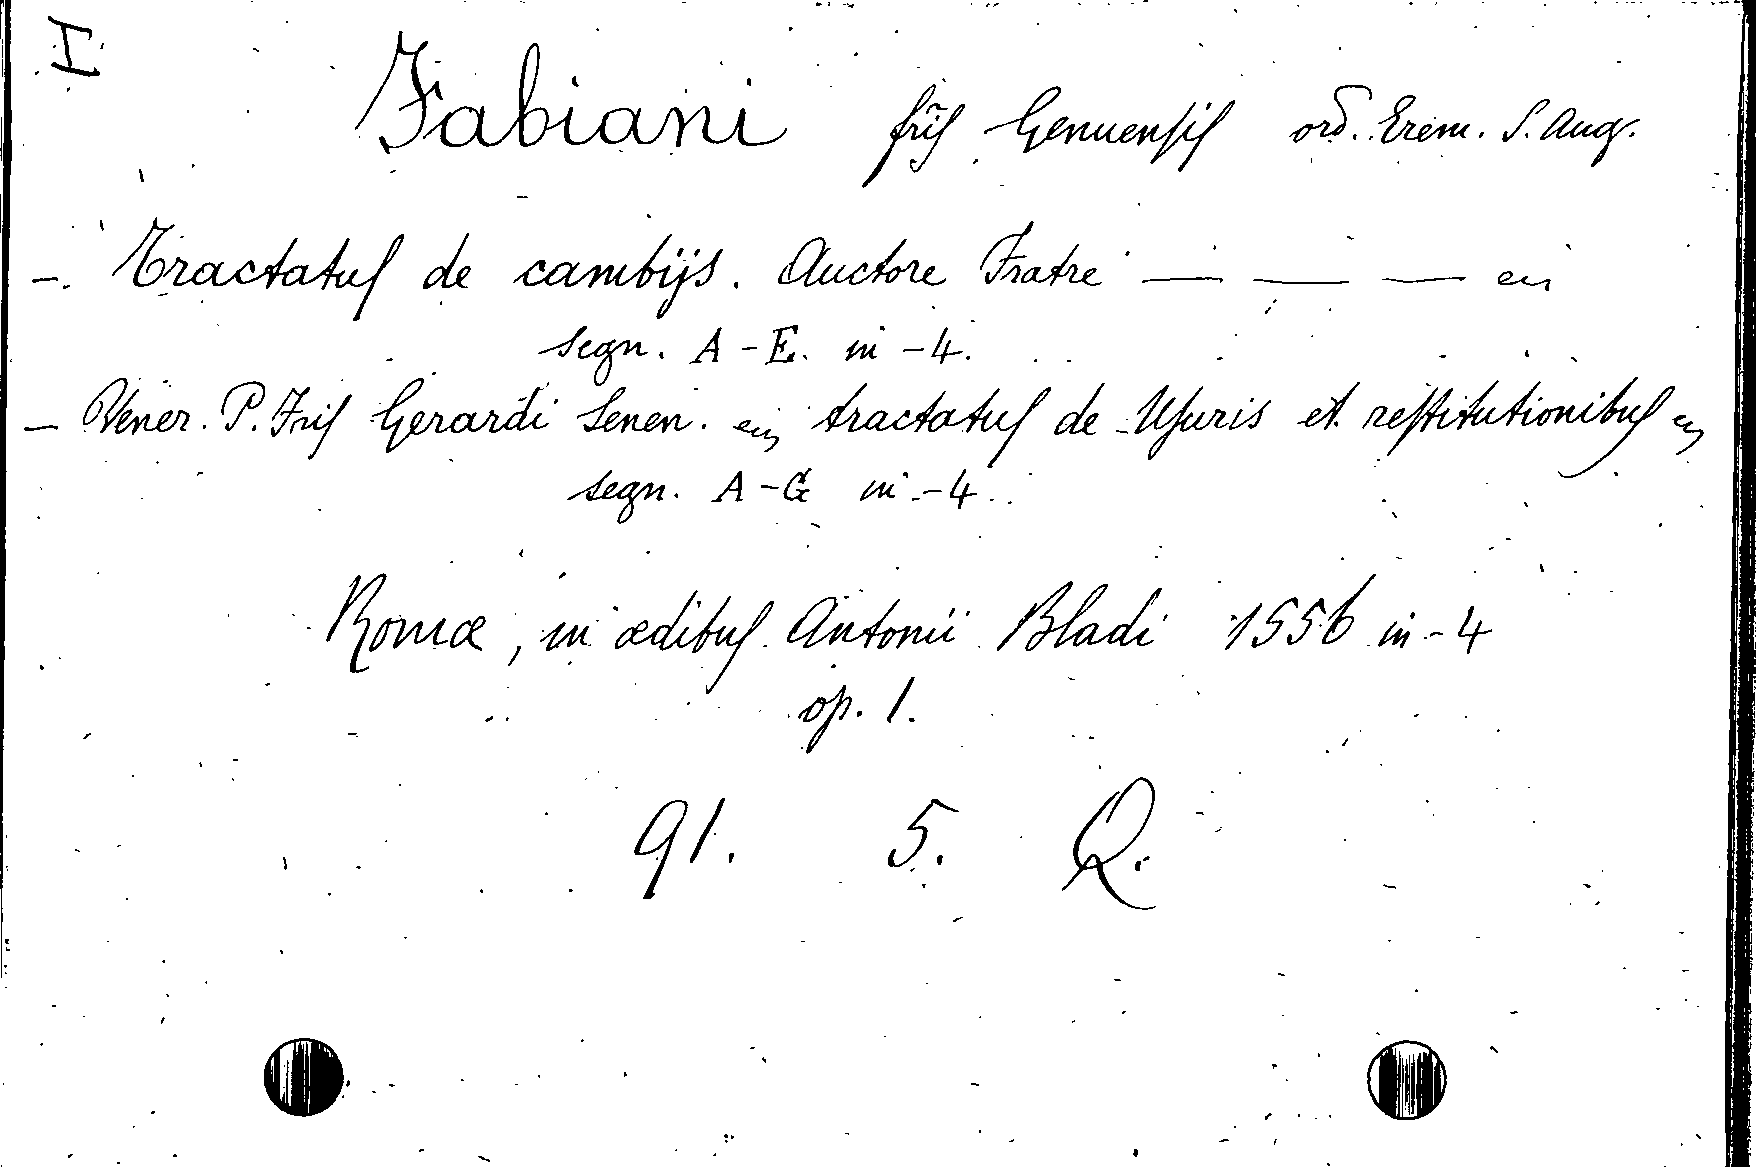 I
Fabiani fris̃ Genuensis ord. Erem. S. Aug.
-. Tractatus de cambijs. Auctore Fratre — — — en
segn. A-E. in-4.
- Vener. P. Fris Gerardi Senen. eiq tractatus de Usuris et restitutionibus
segn. A-G in-4.
Romæ, in ædibus Antonii Bladi 1556 in-4
op. 1.
91. 5. Q.